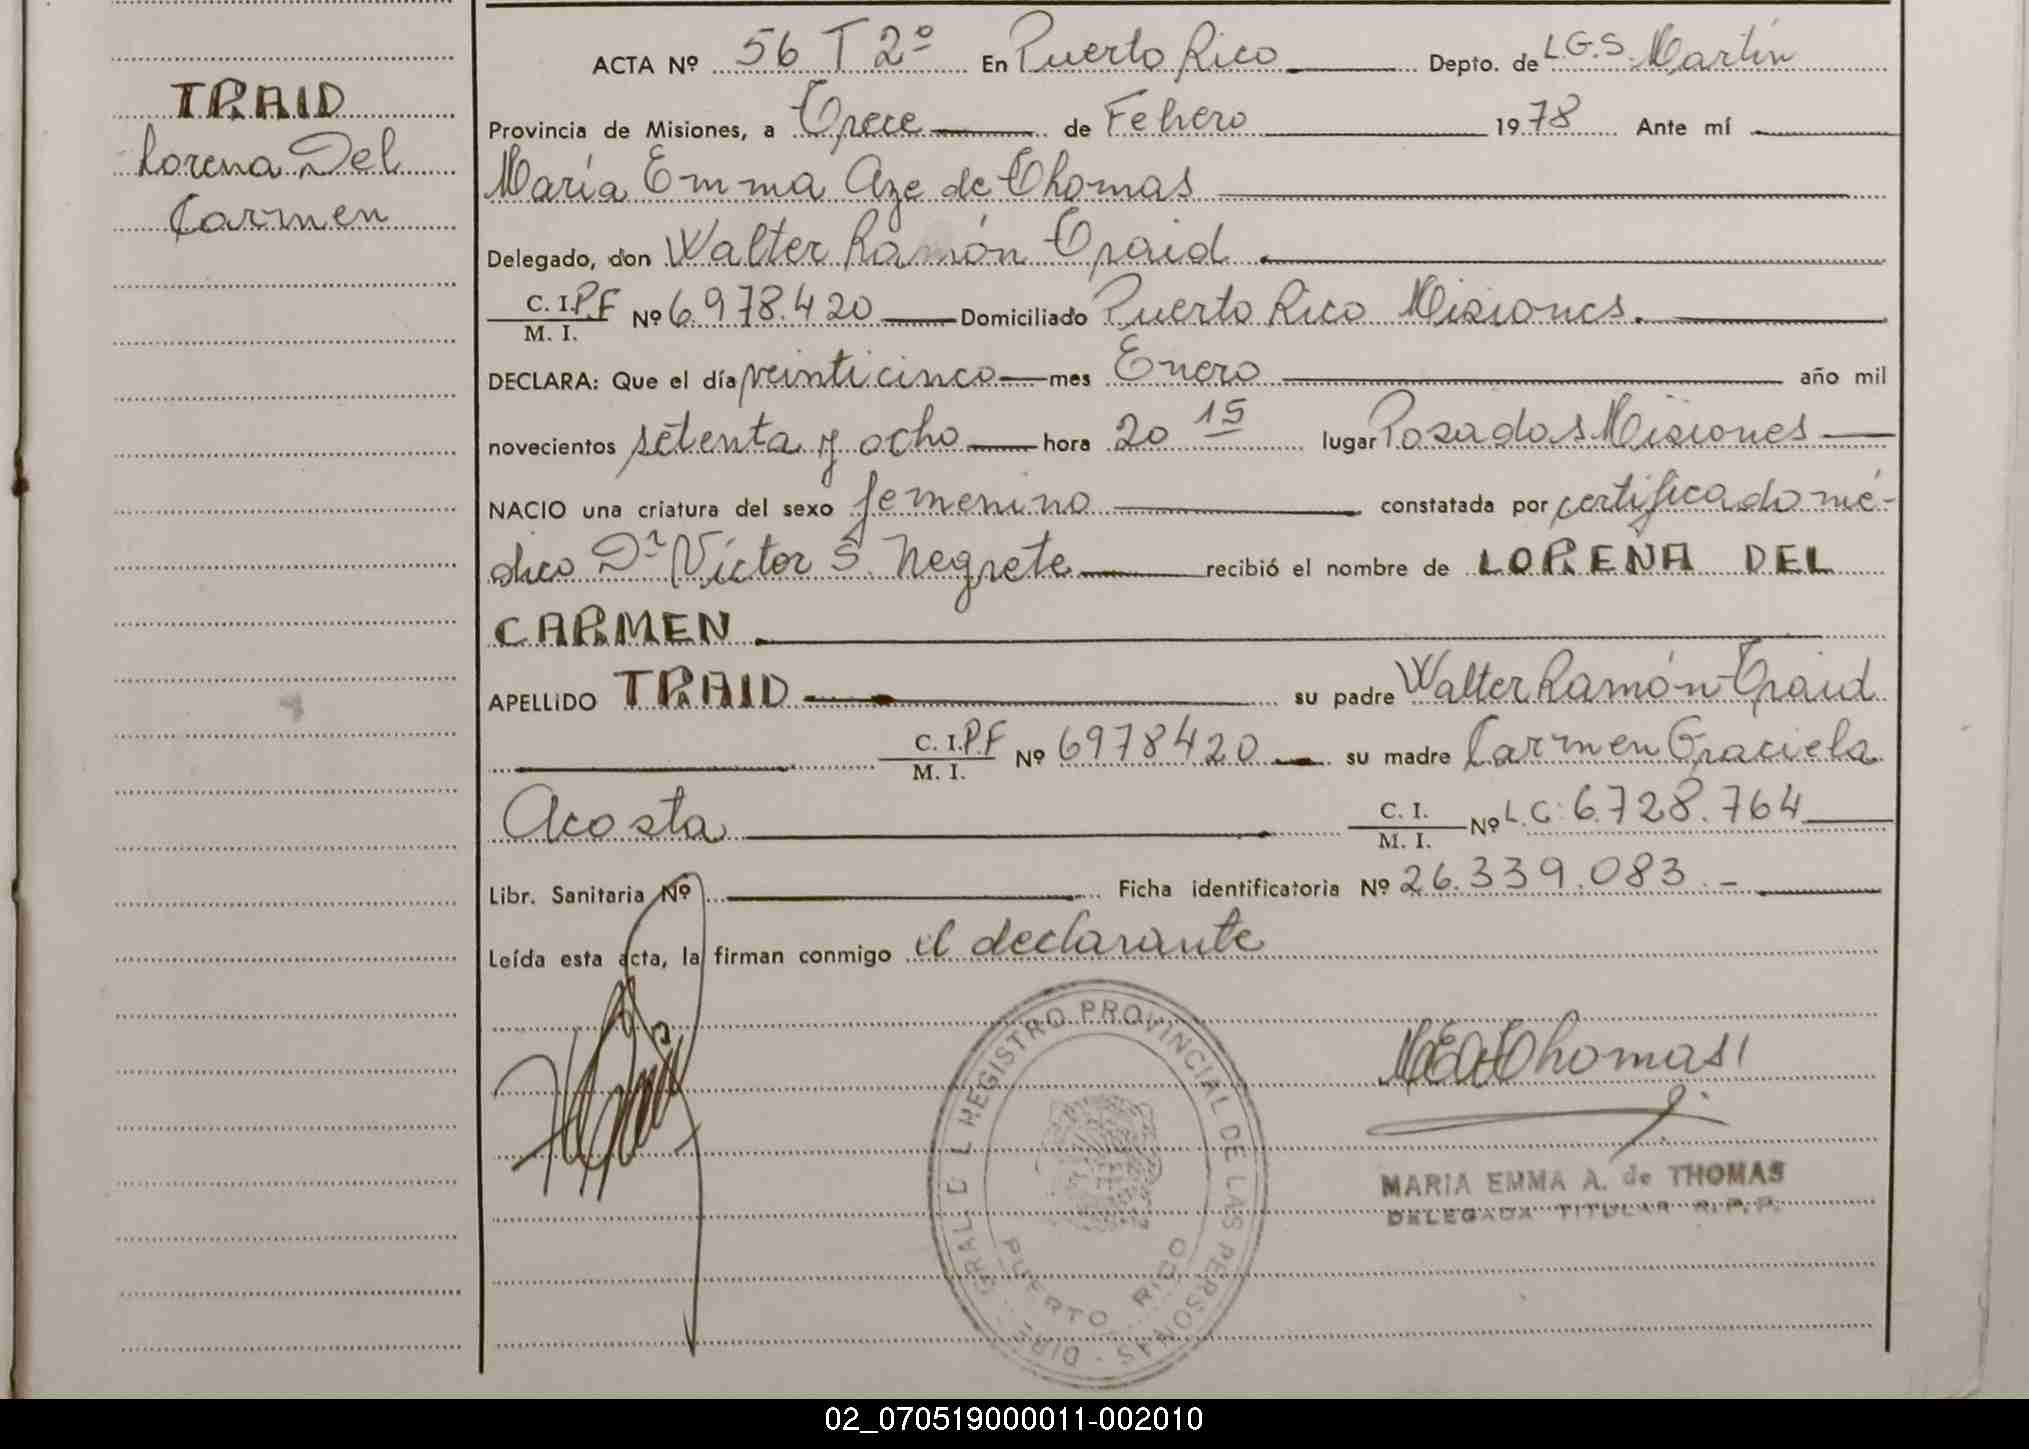 TRAID
Lorena Del
Carmen
ACTA Nº 56 T 2º En Puerto Rico Depto. de L.G.S. Martín
Provincia de Misiones, a Trece de Febrero 1978 Ante mí
María Emma Aze de Thomas
Delegado, don Walter Ramón Traid
C. I. P.F Nº 6.978.420 Domiciliado Puerto Rico Misiones.
M. I.
DECLARA: Que el día veinticinco mes Enero año mil
novecientos setenta y ocho hora 20 15 lugar Posadas Misiones
NACIO una criatura del sexo femenino constatada por certificado mé-
dico Dr Víctor S. Negrete recibió el nombre de LORENA DEL
CARMEN
APELLIDO TRAID su padre Walter Ramón Traid
C. I. P.F Nº 6978420 su madre Carmen Graciela
M. I.
Acosta C. I. Nº L.C: 6.728.764
M. I.
Libr. Sanitaria Nº Ficha identificatoria Nº 26.339.083.-
Leída esta acta, la firman conmigo el declarante
MEAThomas
DIR. GRAL. DEL REGISTRO PROVINCIAL DE LAS PERSONAS
PUERTO RICO
MARIA EMMA A. de THOMAS
DELEGADA TITULAR R.P.P.
02_070519000011-002010